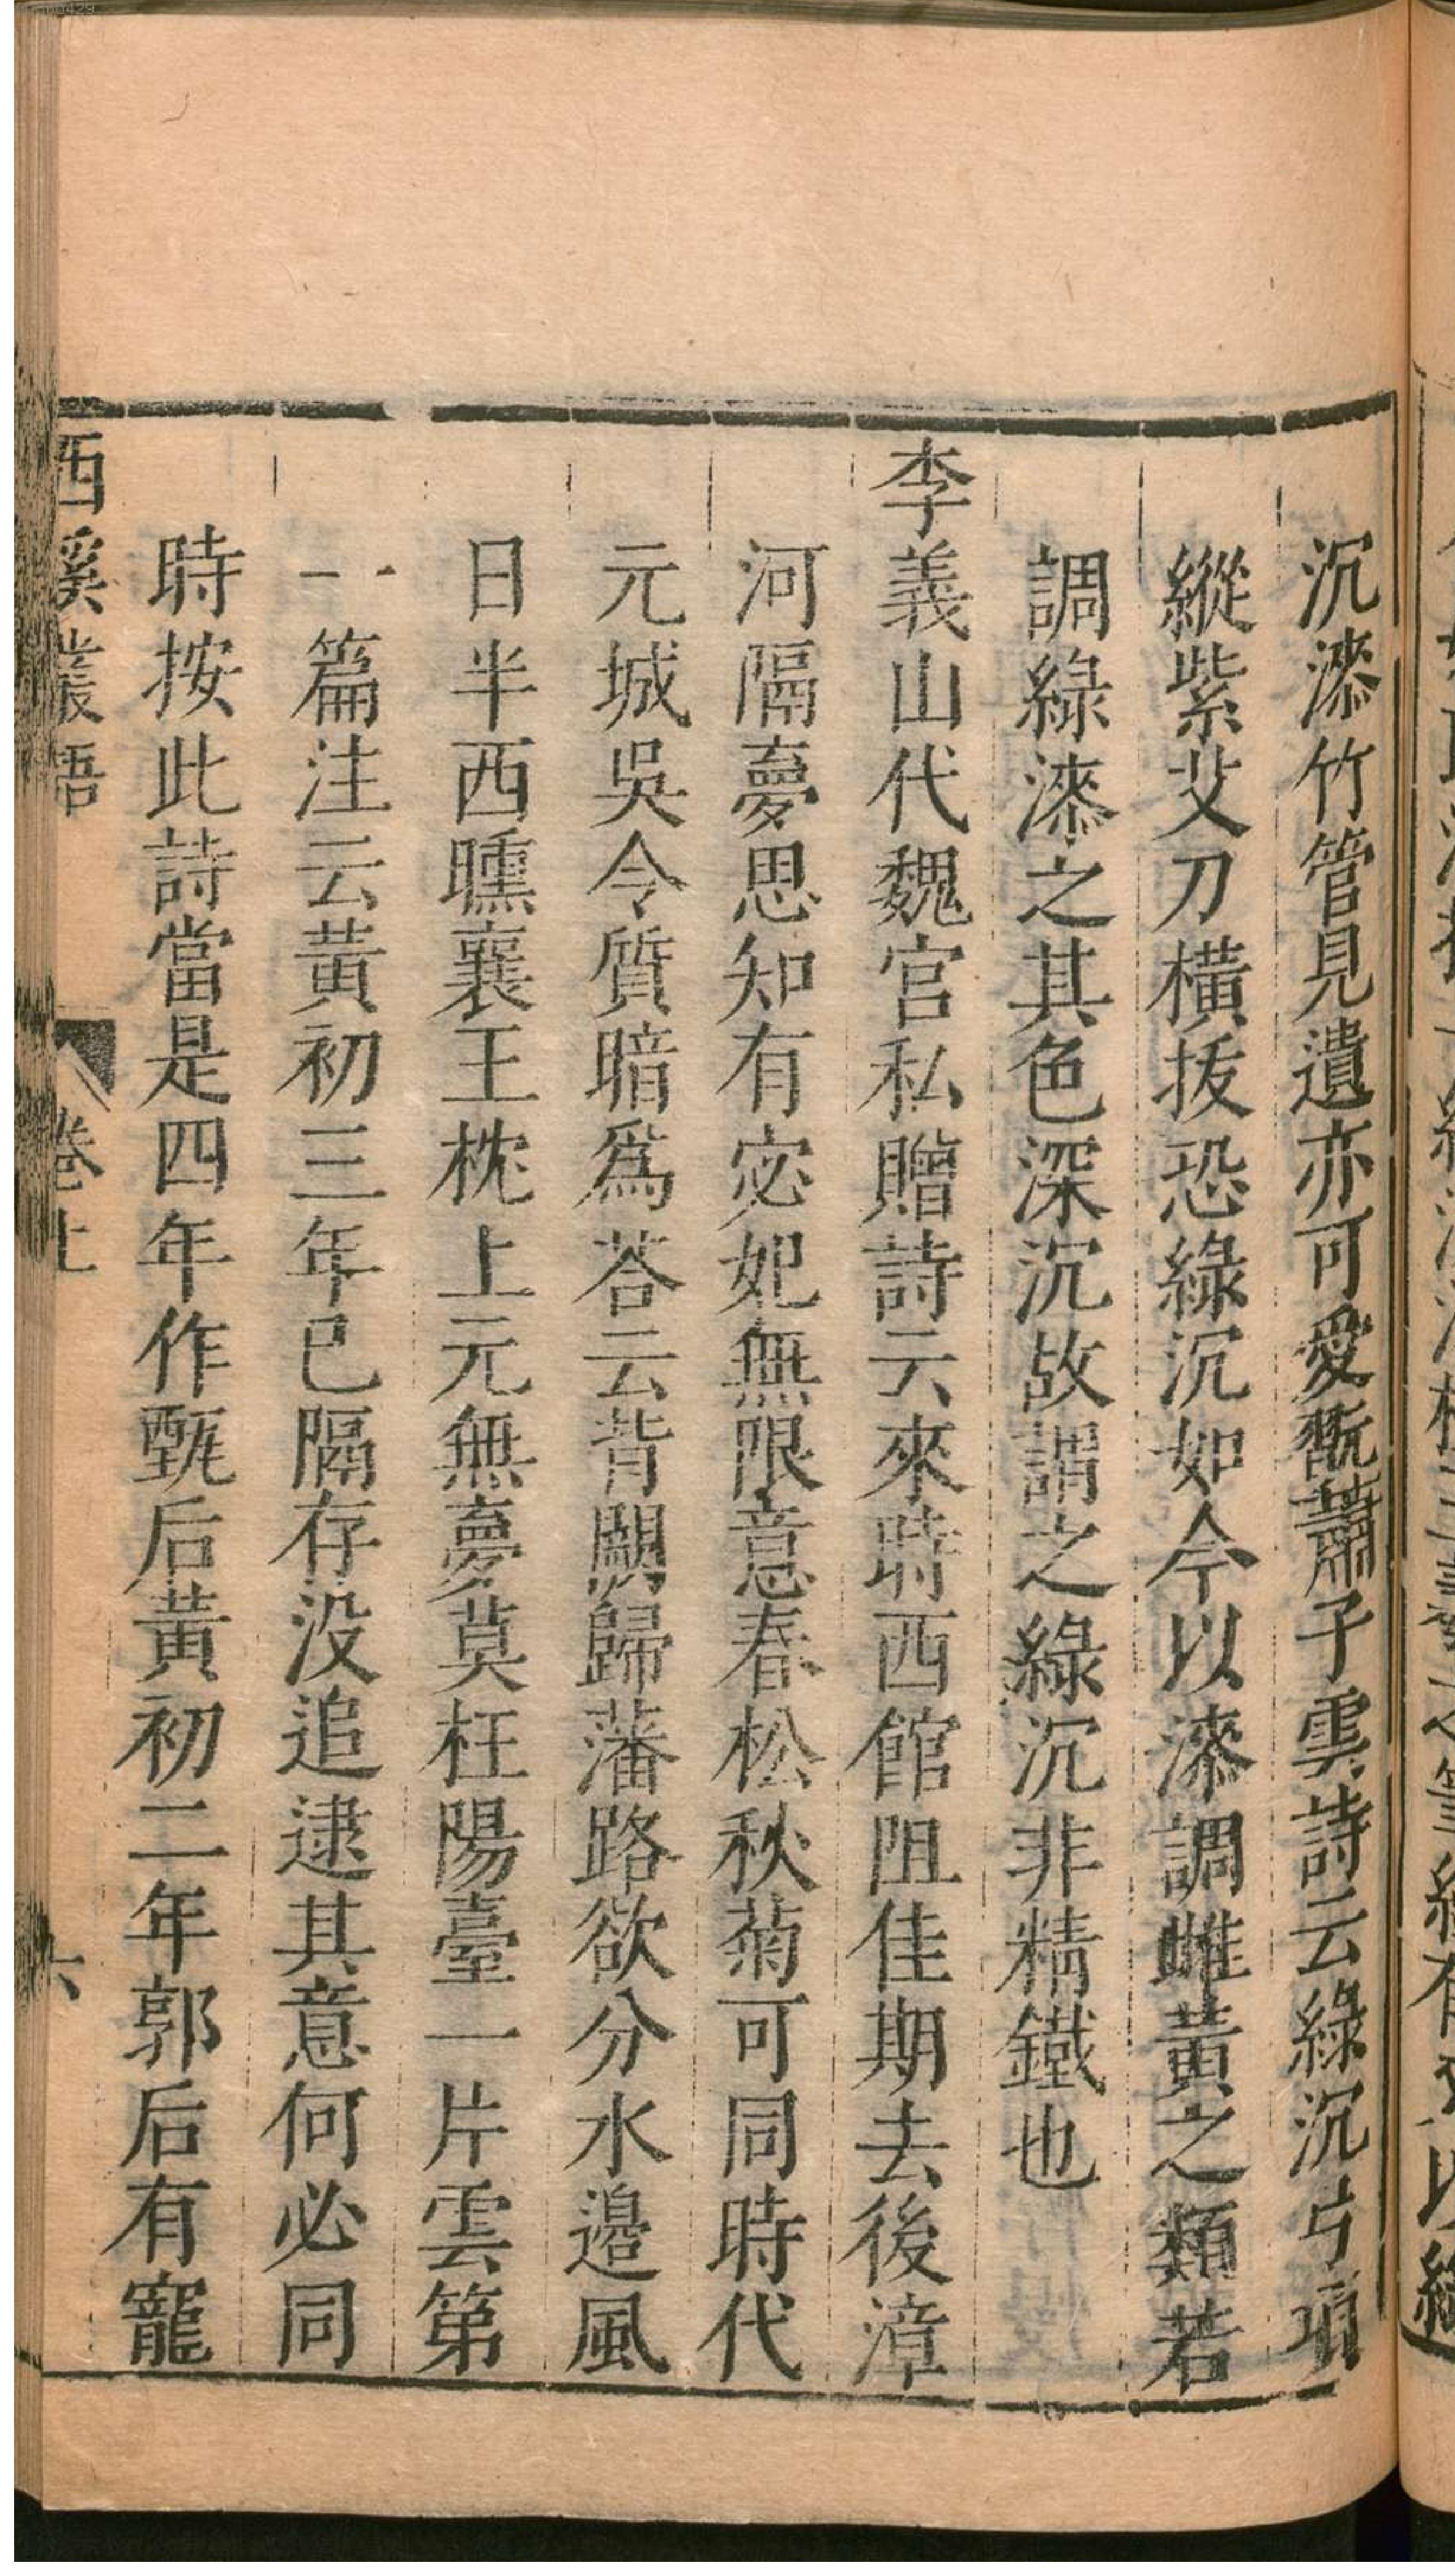 沉漆竹管見遺亦可愛翫蕭子雲詩云綠沉弓項
縱紫艾刀橫拔恐綠沉如今以漆調雌黃之類若
調綠漆之其色深沉故謂之綠沉非精鐵也
李義山代魏宮私贈詩云來時西館阻佳期去後漳
河隔夢思知有宓妃無限意春松秋菊可同時代
元城吳令質暗爲荅云背闕歸藩路欲分水邉風
日半西曛襄王枕上元無夢莫枉陽臺一片雲第
一篇注云黃初三年已隔存没追逮其意何必同
時按此詩當是四年作甄后黃初二年郭后有寵
西溪叢語 卷上 六